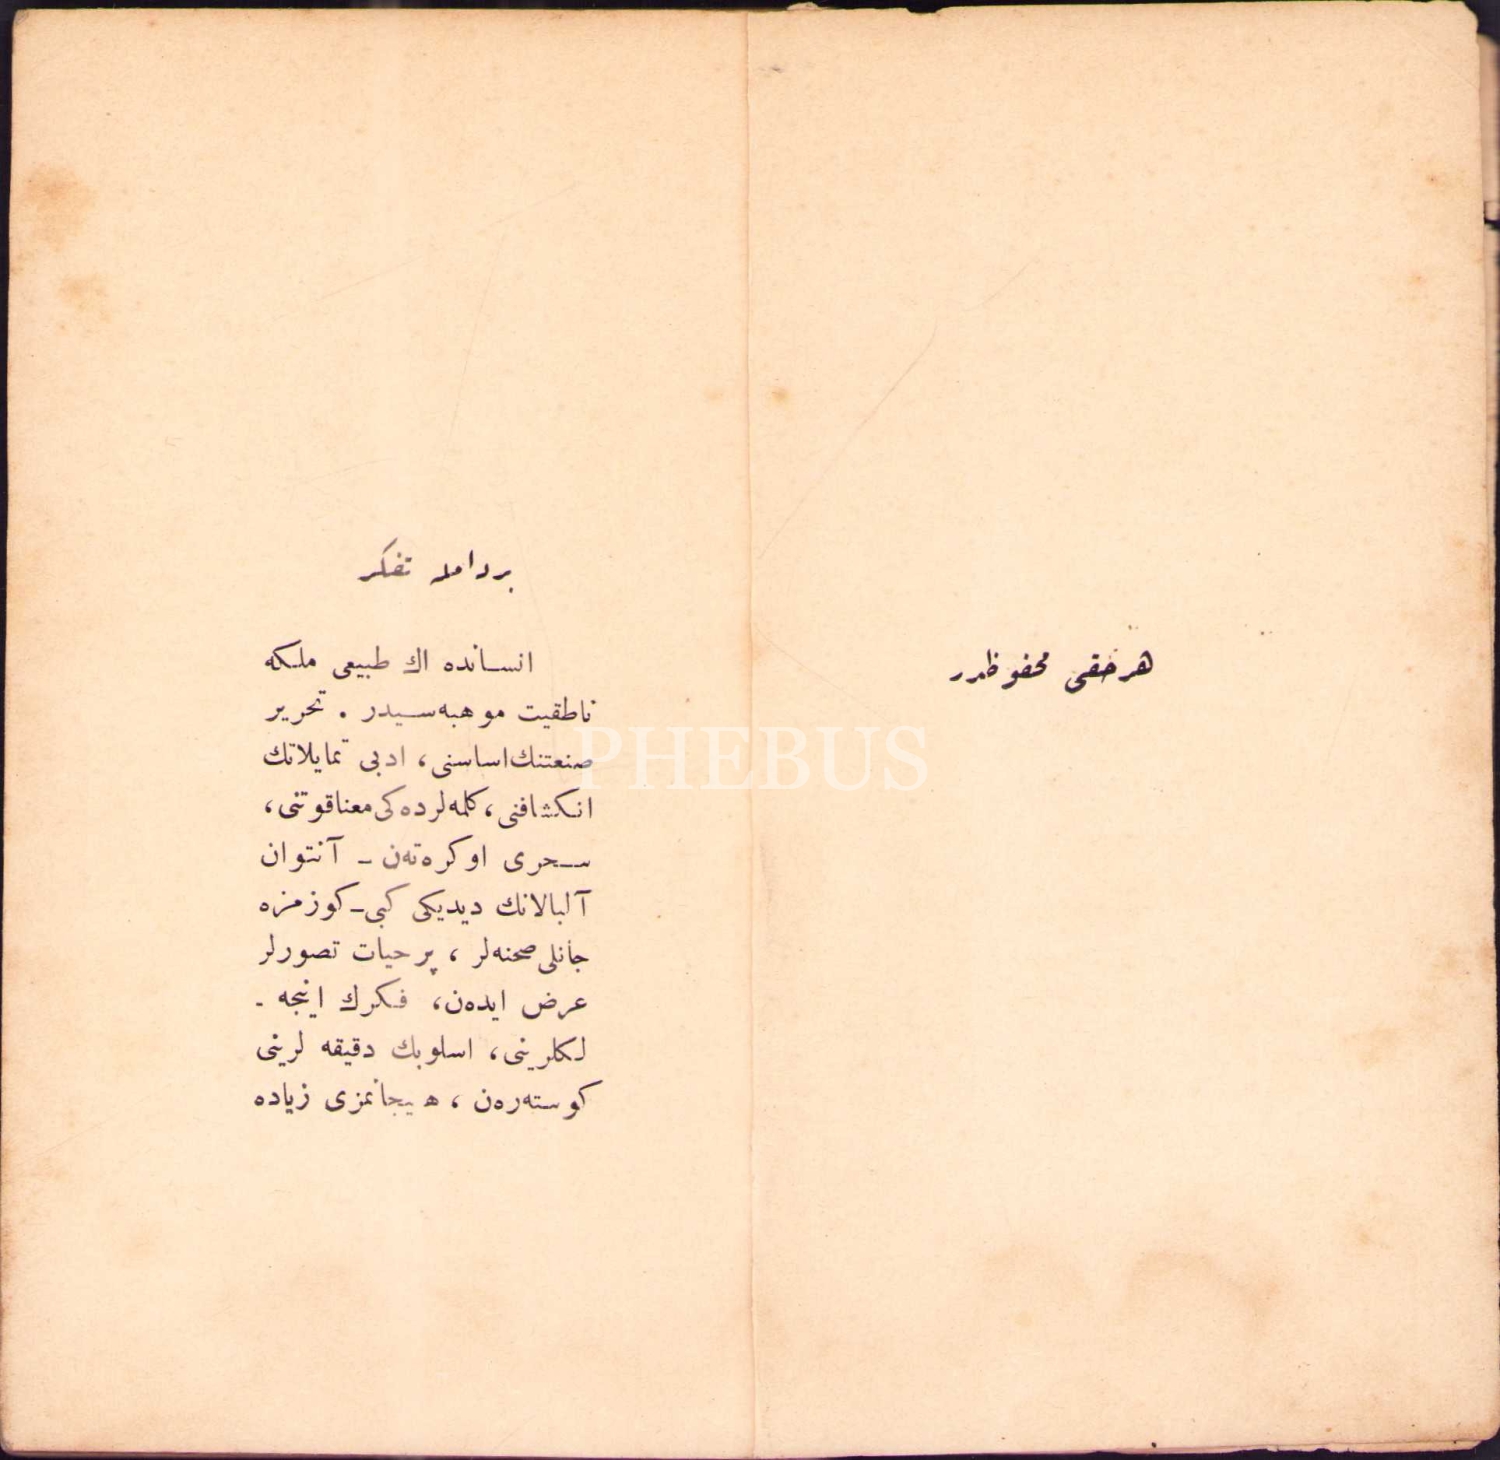 هر حقى محفوظدر
بر دامله تفكر
انسانده اك طبيعى ملكه
ناطقيت موهبه‌سيدر . تحرير
صنعتنك اساسنى، ادبى تمايلاتك
انكشافنى، كلمه‌لرده‌كى معنا قوتنى،
سحرى اوكره‌ته‌ن ـ آنتوان
آلبالانك ديديكى كبى ـ كوزمزه
جانلى صحنه‌لر ، پر حيات تصورلر
عرض ايده‌ن، فكرك اينجه ـ
لكلرينى، اسلوبك دقيقه لرينى
كوسته‌ره‌ن ، هيجانمزى زياده
PHEBUS